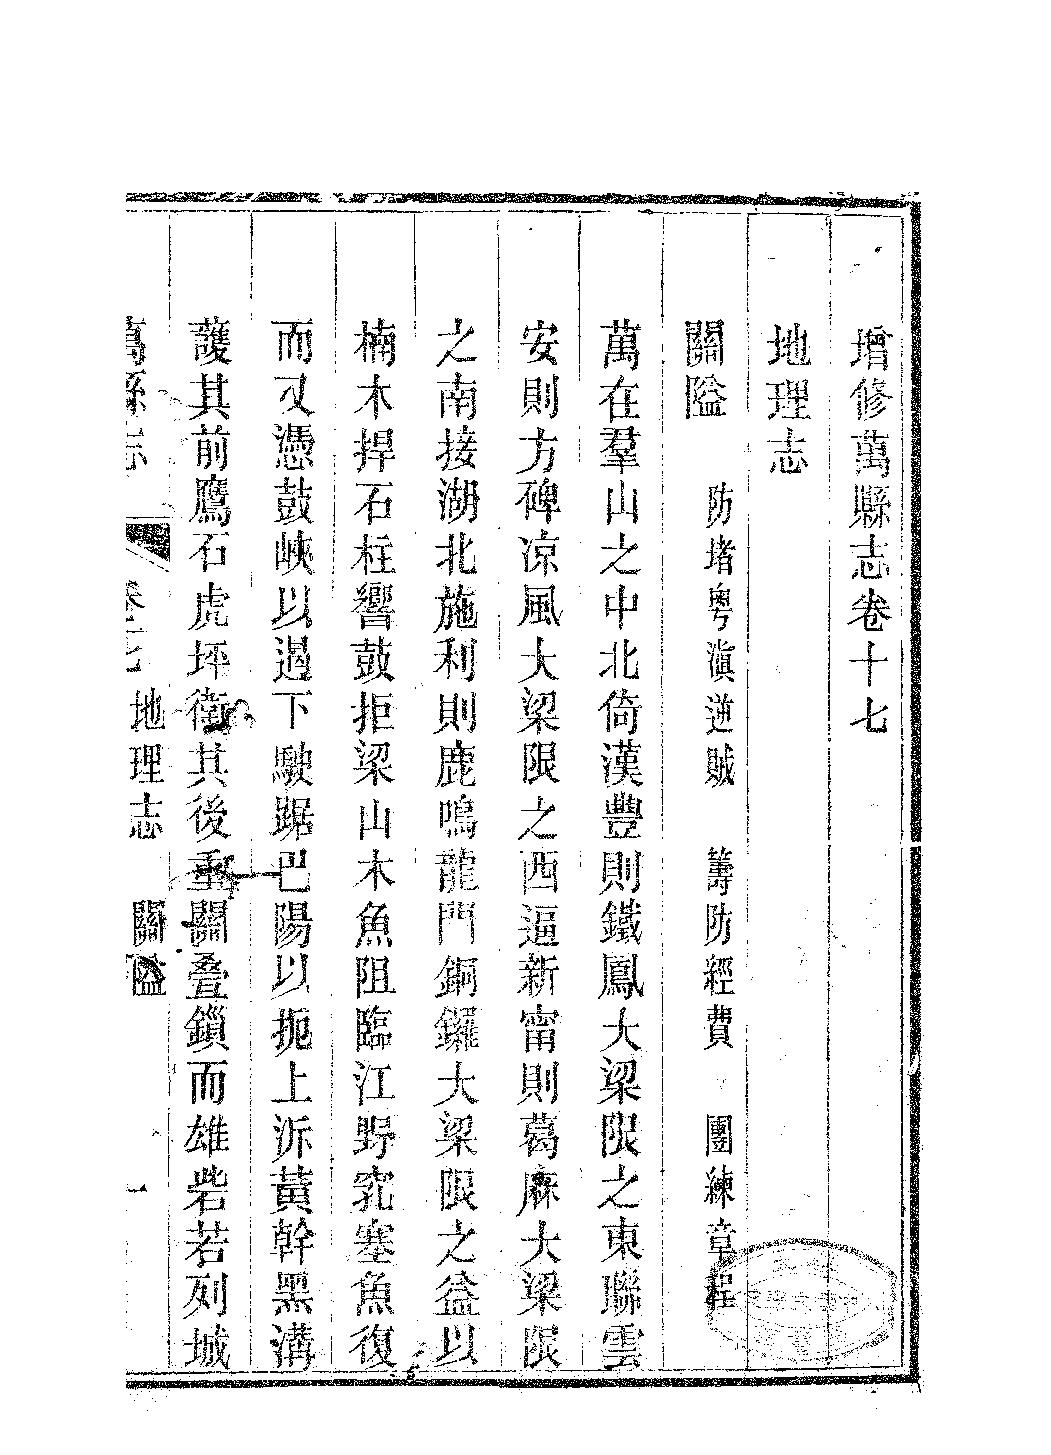 增修萬縣志卷十七
地理志
關隘 防堵粤滇逆賊 籌防經費 團練章程
萬在羣山之中北倚漢豐則鐵鳳大梁限之東聯雲
安則方碑凉風大梁限之西逼新甯則葛麻大梁限
之南接湖北施利則鹿鳴龍門銅鑼大梁限之益以
楠木捍石柱響鼓拒梁山木魚阻臨江野豝塞魚復
而又憑鼓峽以遏下駛踞巴陽以扼上泝黃幹黑溝
護其前鷹石虎坪衛其後重關叠鎖而雄砦若列城
萬縣志 卷十七 地理志 關隘 一